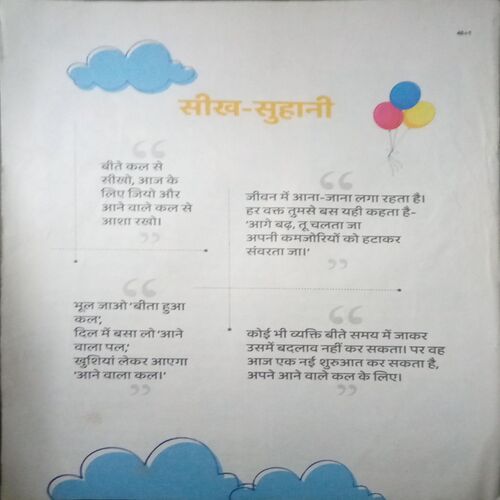 सीख-सुहानी
बीते कल से
सीखो, आज के
लिए जियो और
आने वाले कल से
आशा रखो।
जीवन में आना-जाना लगा रहता है।
हर वक्त तुमसे बस यही कहता है-
'आगे बढ़, तू चलता जा
अपनी कमजोरियों को हटाकर
संवरता जा।'
भूल जाओ 'बीता हुआ
कल',
दिल में बसा लो 'आने
वाला पल,'
खुशियां लेकर आएगा
'आने वाला कल।'
कोई भी व्यक्ति बीते समय में जाकर
उसमें बदलाव नहीं कर सकता। पर वह
आज एक नई शुरुआत कर सकता है,
अपने आने वाले कल के लिए।